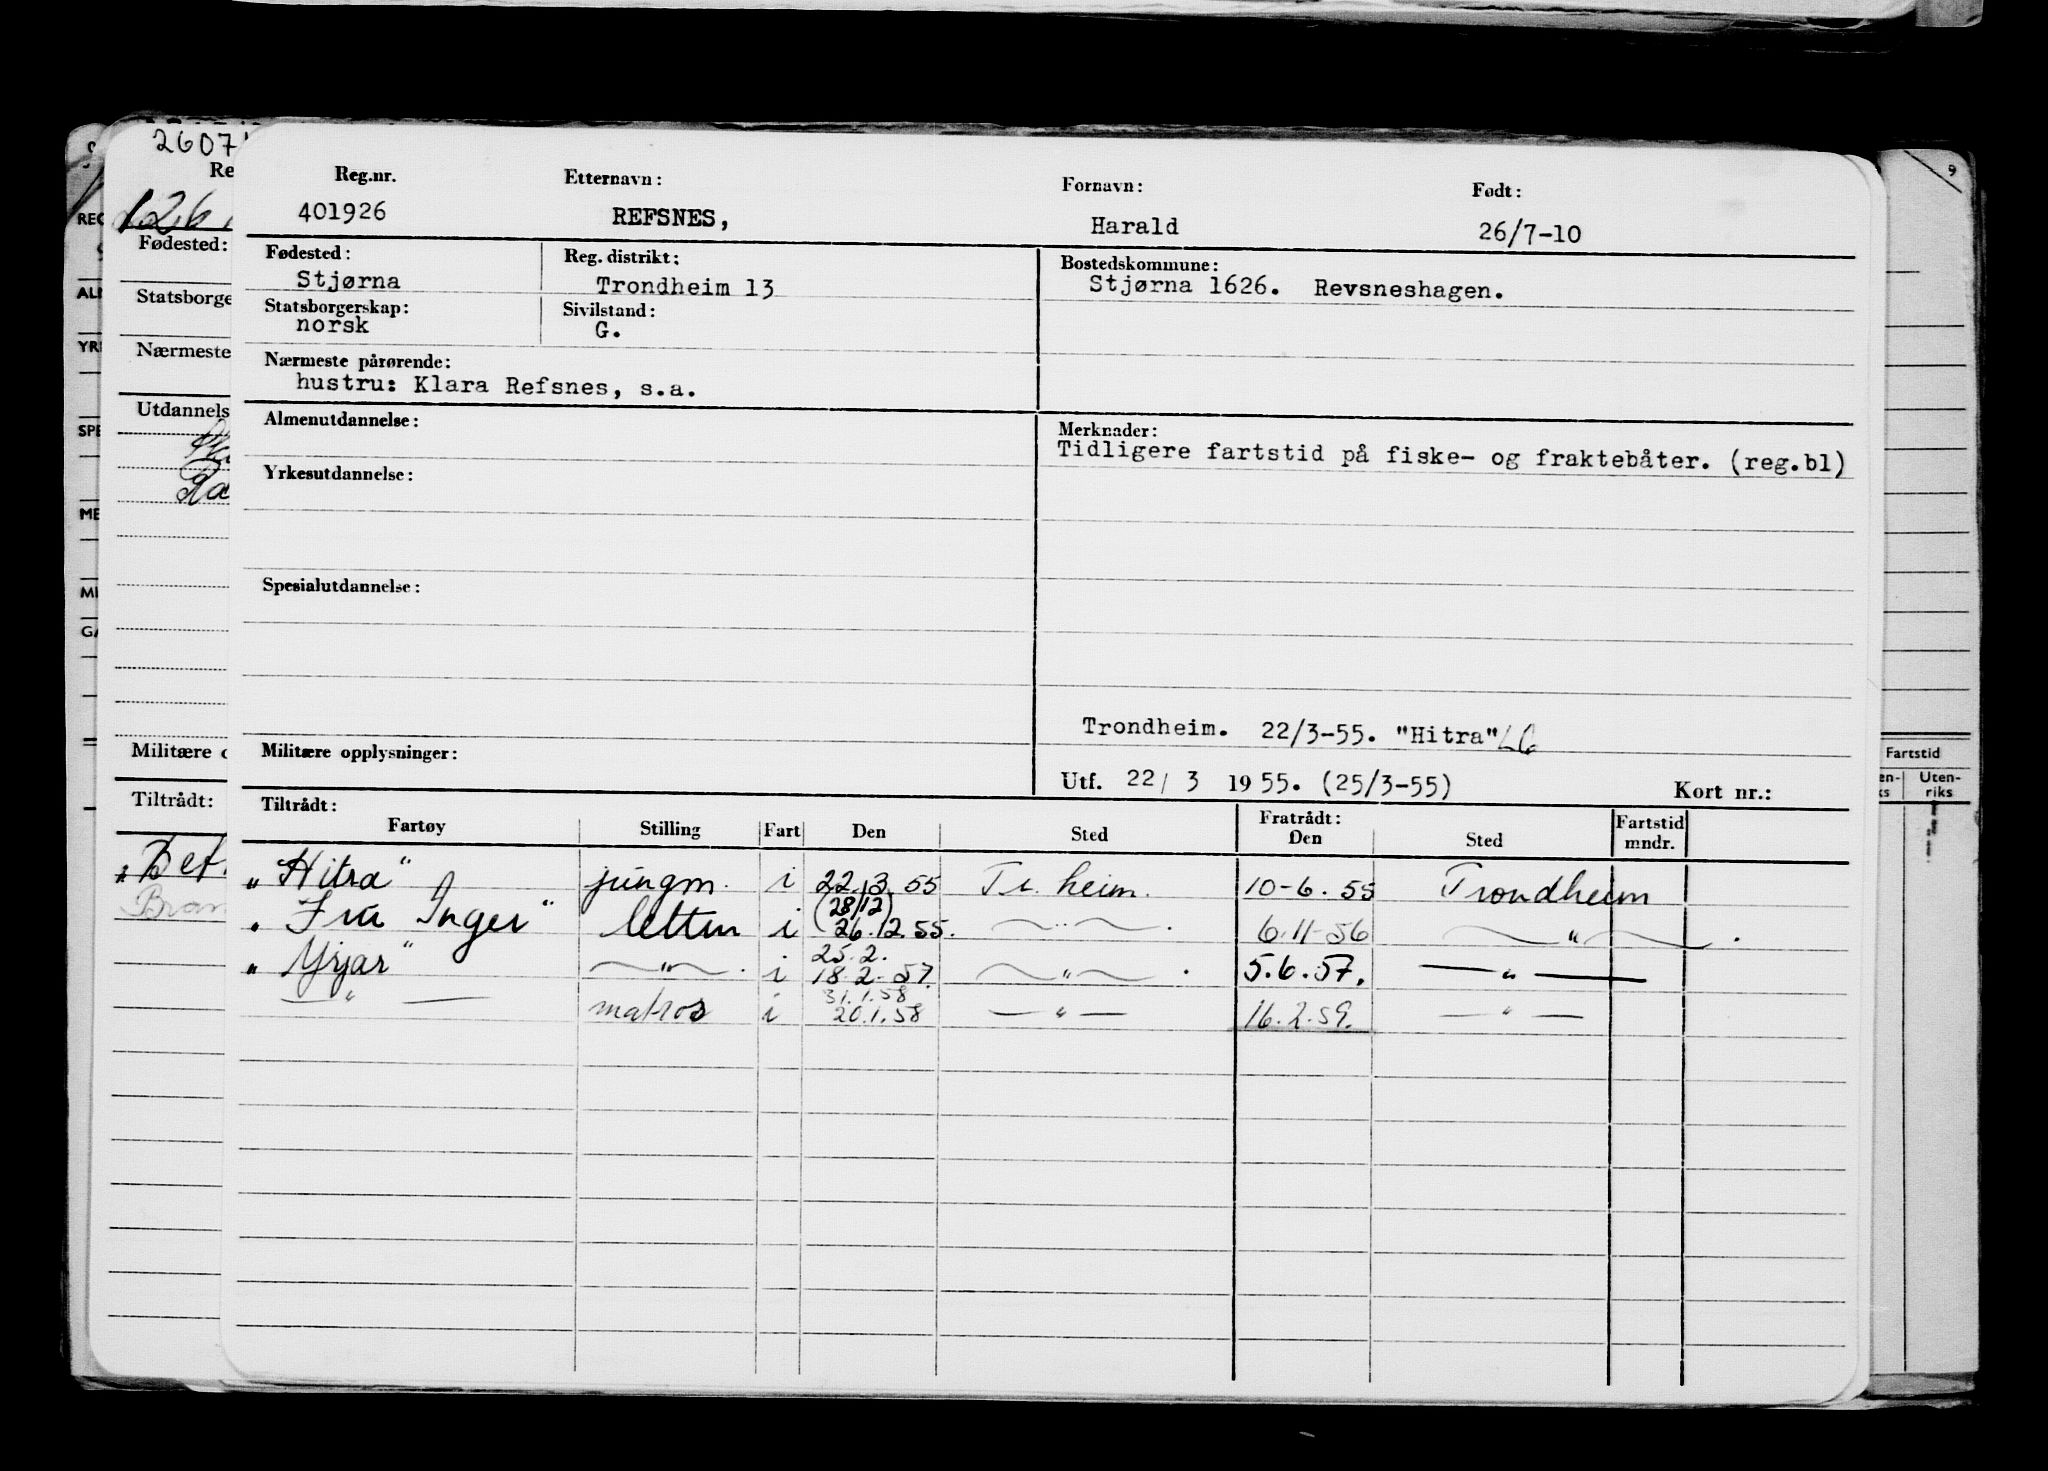 26071
Reg.nr. Etternavn: Fornavn: Født:
401926 REFSNES, Harald 26/7-10
Fødested: Reg. distrikt: Bostedskommune:
Stjørna Trondheim 13 Stjørna 1626. Revsneshagen.
Statsborgerskap: Sivilstand:
norsk G.
Nærmeste pårørende:
hustru: Klara Refsnes, s.a.
Almenutdannelse: Merknader:
Tidligere fartstid på fiske- og fraktebåter. (reg.bl)
Yrkesutdannelse:
Spesialutdannelse:
Trondheim. 22/3-55. "Hitra"
Militære opplysninger:
Utf. 22/ 3 1955. (25/3-55) Kort nr.:
Tiltrådt: Fratrådt: Fartstid
Fartøy Stilling Fart Den Sted Den Sted mndr.
"Hitra" jungm. i 22.3.55 Tr.heim. 10-6.55 Trondheim
(28/12)
" Fru Inger" lettm i 26.12.55. — " — 6.11-56 — " —
25.2.
" Yrjar" — " — i 18.2.57. — " — 5.6.57. — " —
31.1.58
— " — matros i 20.1.58 — " — 16.2.59. — " —
Fødested:
Statsborge
Nærmeste
Utdannels
Militære o
Tiltrådt:
9
Fartstid
Uten-
riks